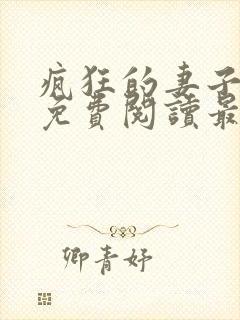 疯狂的妻子
免費閱讀最
卿青妤